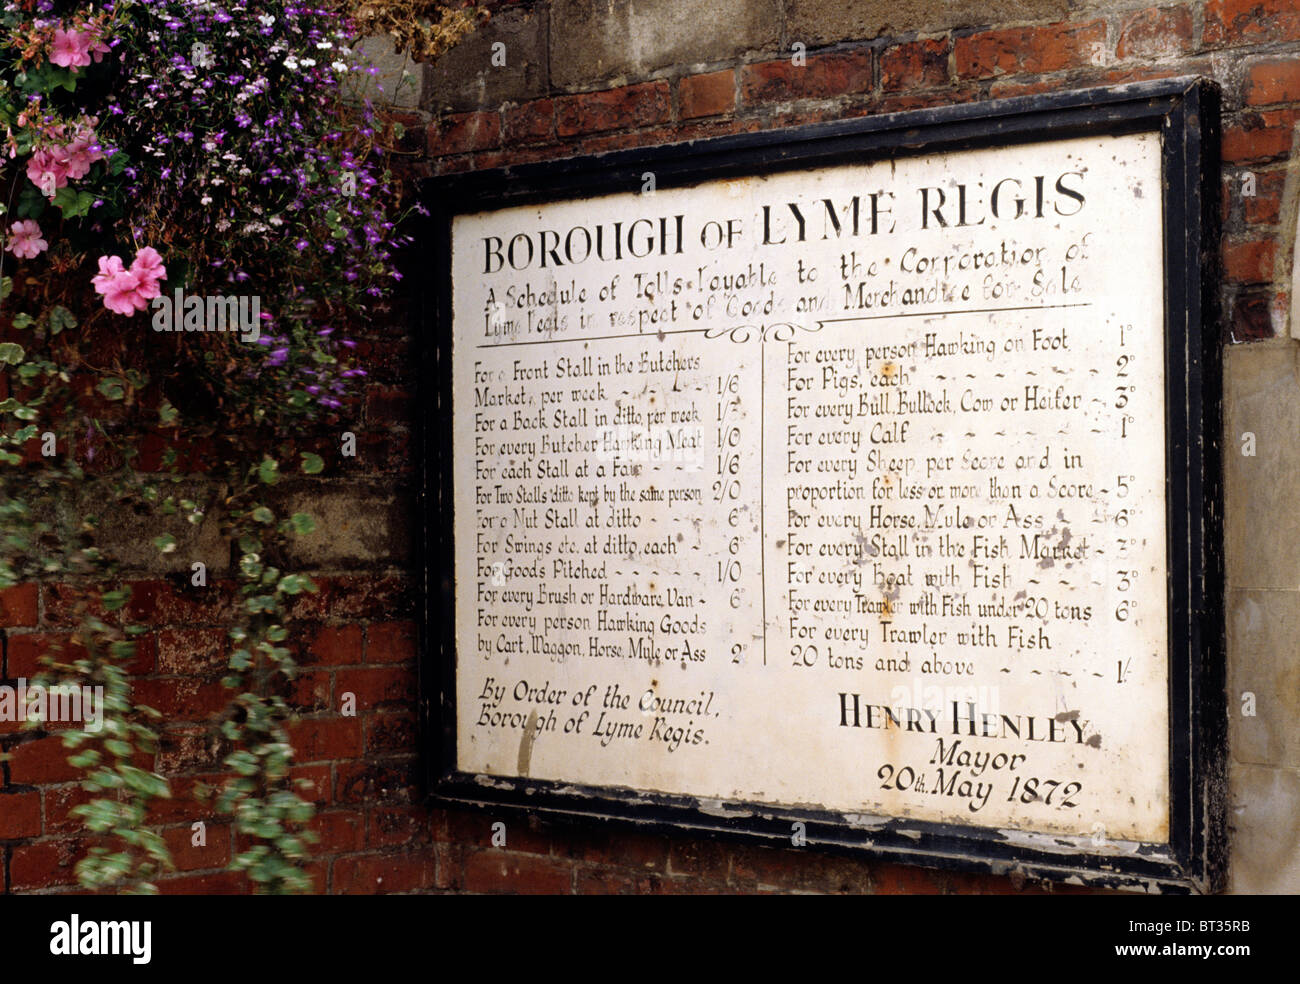 BOROUGH OF LYME REGIS
A Schedule of Tolls Payable to the Corporation of
Lyme Regis in respect of Goods and Merchandise for Sale
For a Front Stall in the Butchers
Market, per week - - - 1/6
For a Back Stall in ditto, per week
For every Butcher Hawking Meat 1/0
For each Stall at a Fair - - 1/6
For Two Stalls ditto kept by the same person 2/0
For a Nut Stall at ditto - - - 6ᵈ
For Swings etc. at ditto, each - 6ᵈ
For Goods Pitched - - - - - 1/0
For every Brush or Hardware Van - 6ᵈ
For every person Hawking Goods
by Cart, Waggon, Horse, Mule or Ass 2ᵈ
By Order of the Council,
Borough of Lyme Regis.
For every person Hawking on Foot 1ᵈ
For Pigs, each - - - - - - 2ᵈ
For every Bull, Bullock, Cow or Heifer - 3ᵈ
For every Calf - - - - - - 1ᵈ
For every Sheep per Score and in
proportion for less or more than a Score - 5ᵈ
For every Horse, Mule or Ass - - - 6ᵈ
For every Stall in the Fish Market - 3ᵈ
For every Boat with Fish - - - - 3ᵈ
For every Trawler with Fish under 20 tons 6ᵈ
For every Trawler with Fish
20 tons and above - - - - 1/-
HENRY HENLEY
Mayor
20th. May 1872
alamy
Image ID: BT35RB
www.alamy.com